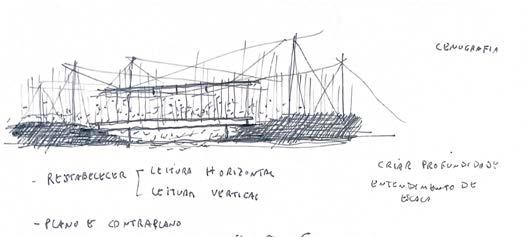 CENOGRAFIA
- RESTABELECER [ LEITURA HORIZONTAL
LEITURA VERTICAL
- PLANO E CONTRAPLANO
CRIAR PROFUNDIDADE
ENTENDIMENTO DE
ESCALA